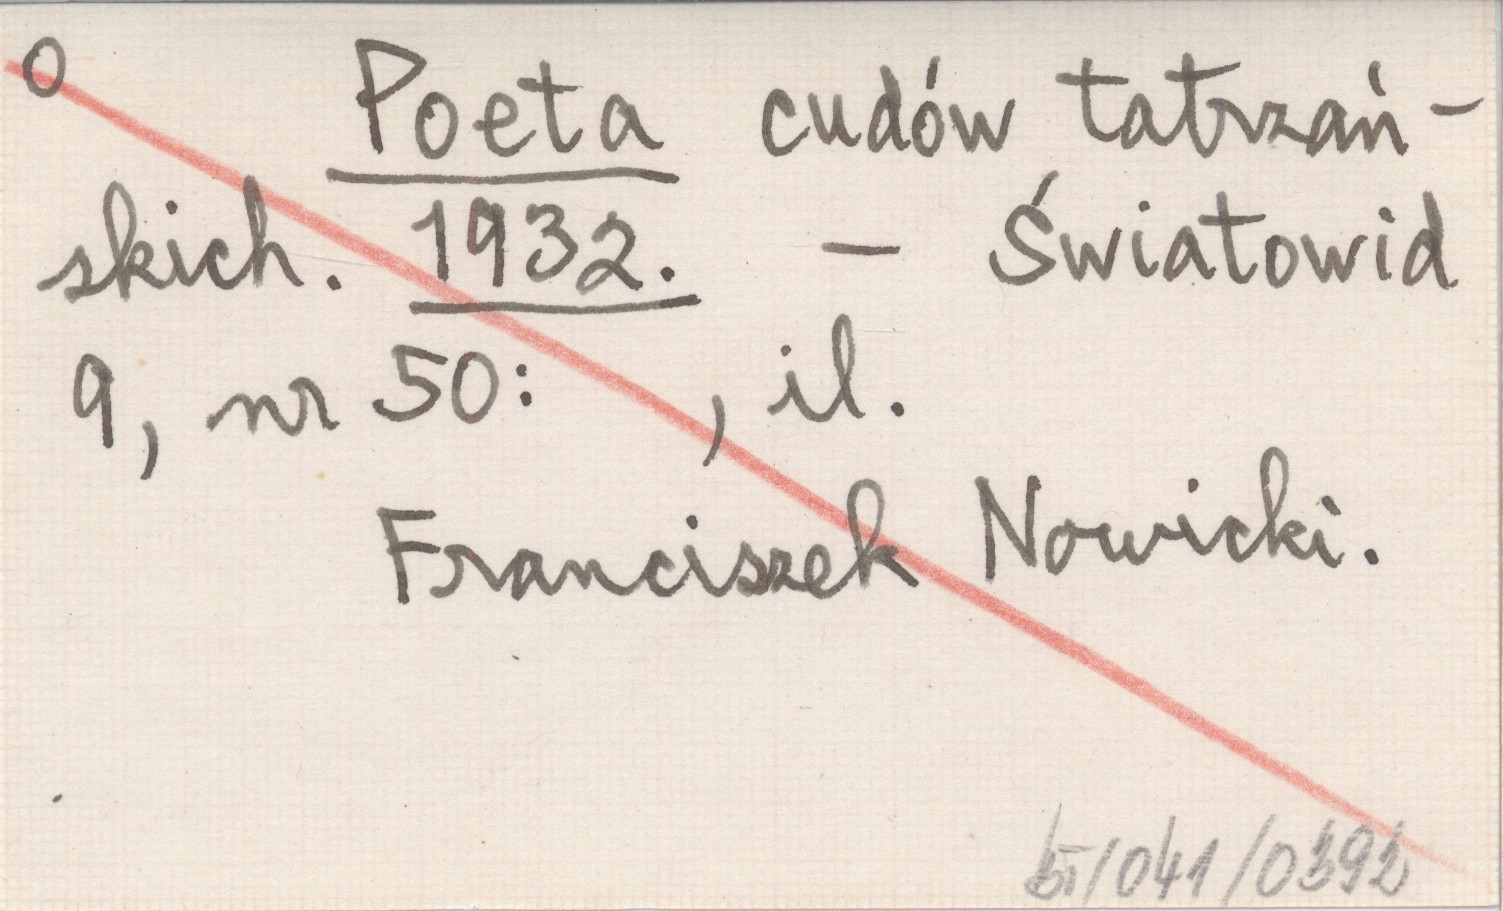 O Poeta cudów tatrzań-
skich. 1932. – Światowid
9, nr 50: , il.
Franciszek Nowicki.
/041/0392